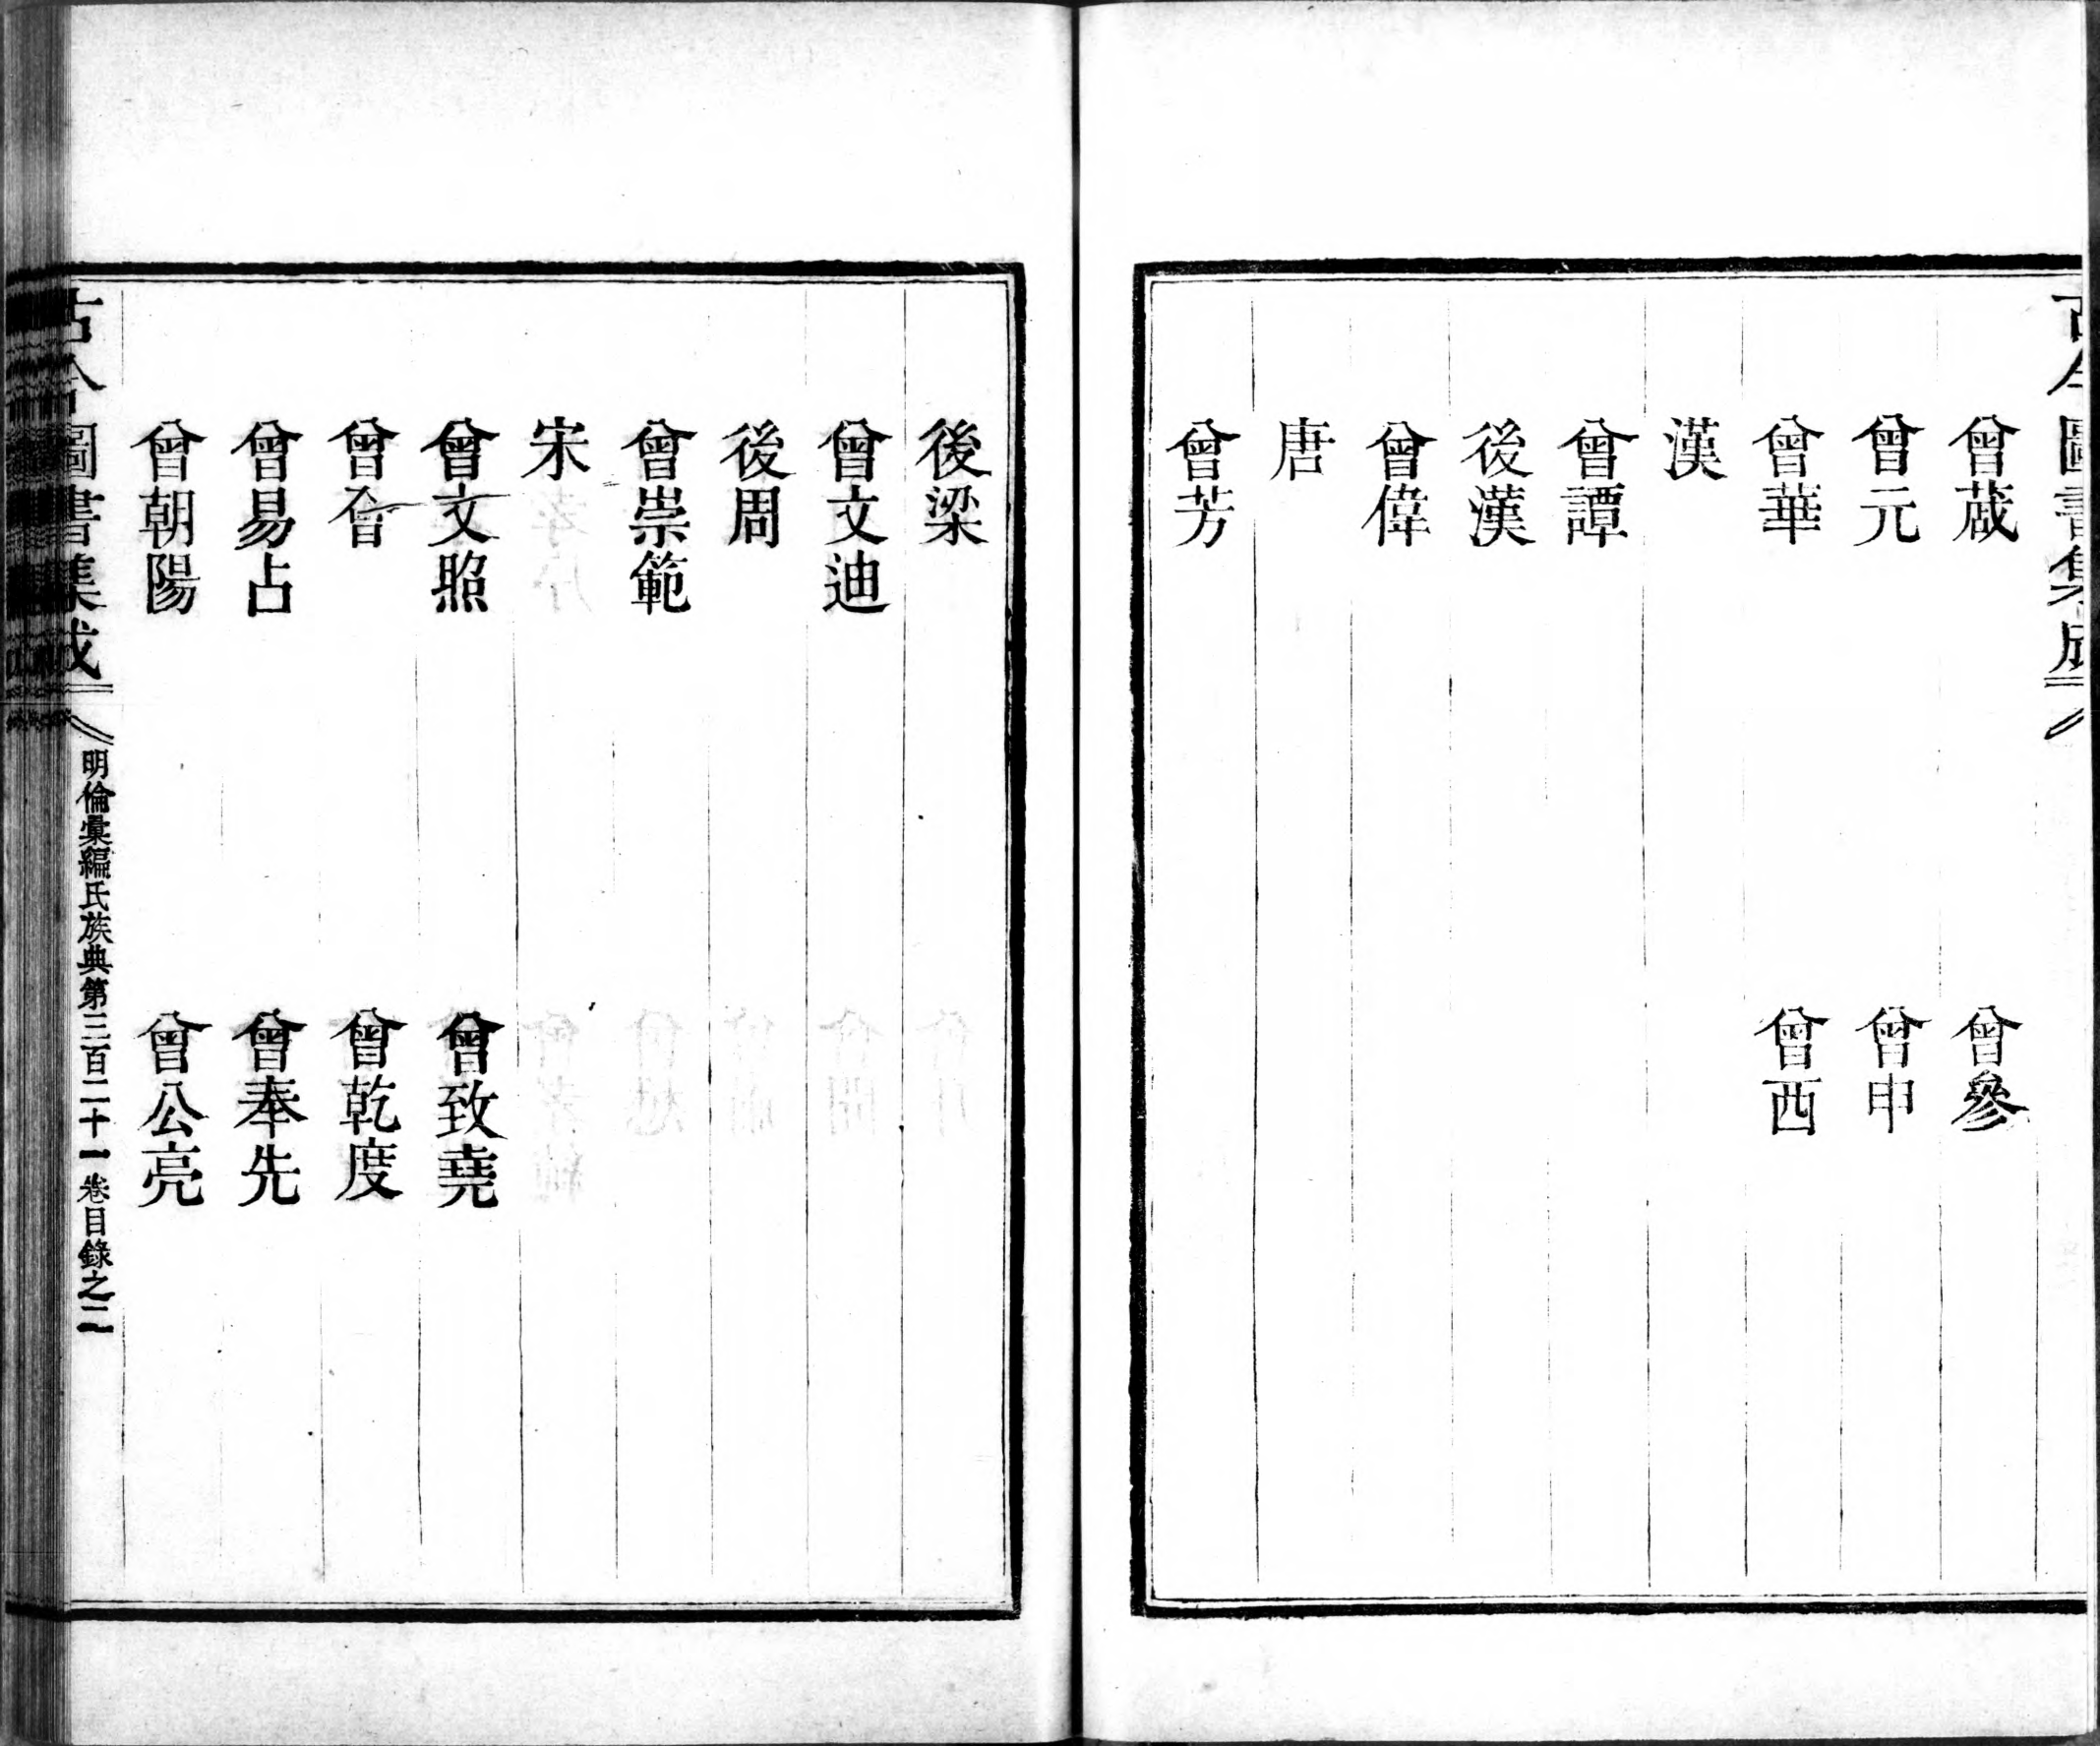 古今圖書集成
曾蒧 曾參
曾元 曾申
曾華 曾西
漢
曾譚
後漢
曾偉
唐
曾芳
後梁
曾文迪
後周
曾崇範
宋
曾文照 曾致堯
曾會 曾乾度
曾易占 曾奉先
曾朝陽 曾公亮
古今圖書集成
明倫彙編氏族典第三百二十一卷目錄之二